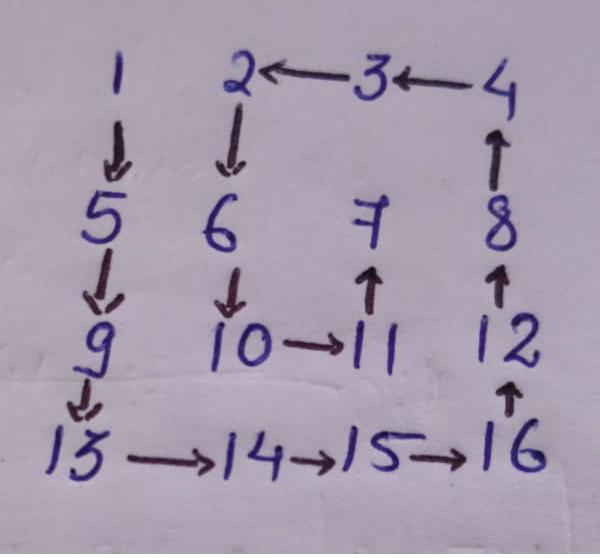 1 2 ← 3 ← 4
↓ ↓ ↑
5 6 7 8
↓ ↓ ↑ ↑
9 10 → 11 12
↓ ↑
13 → 14 → 15 → 16